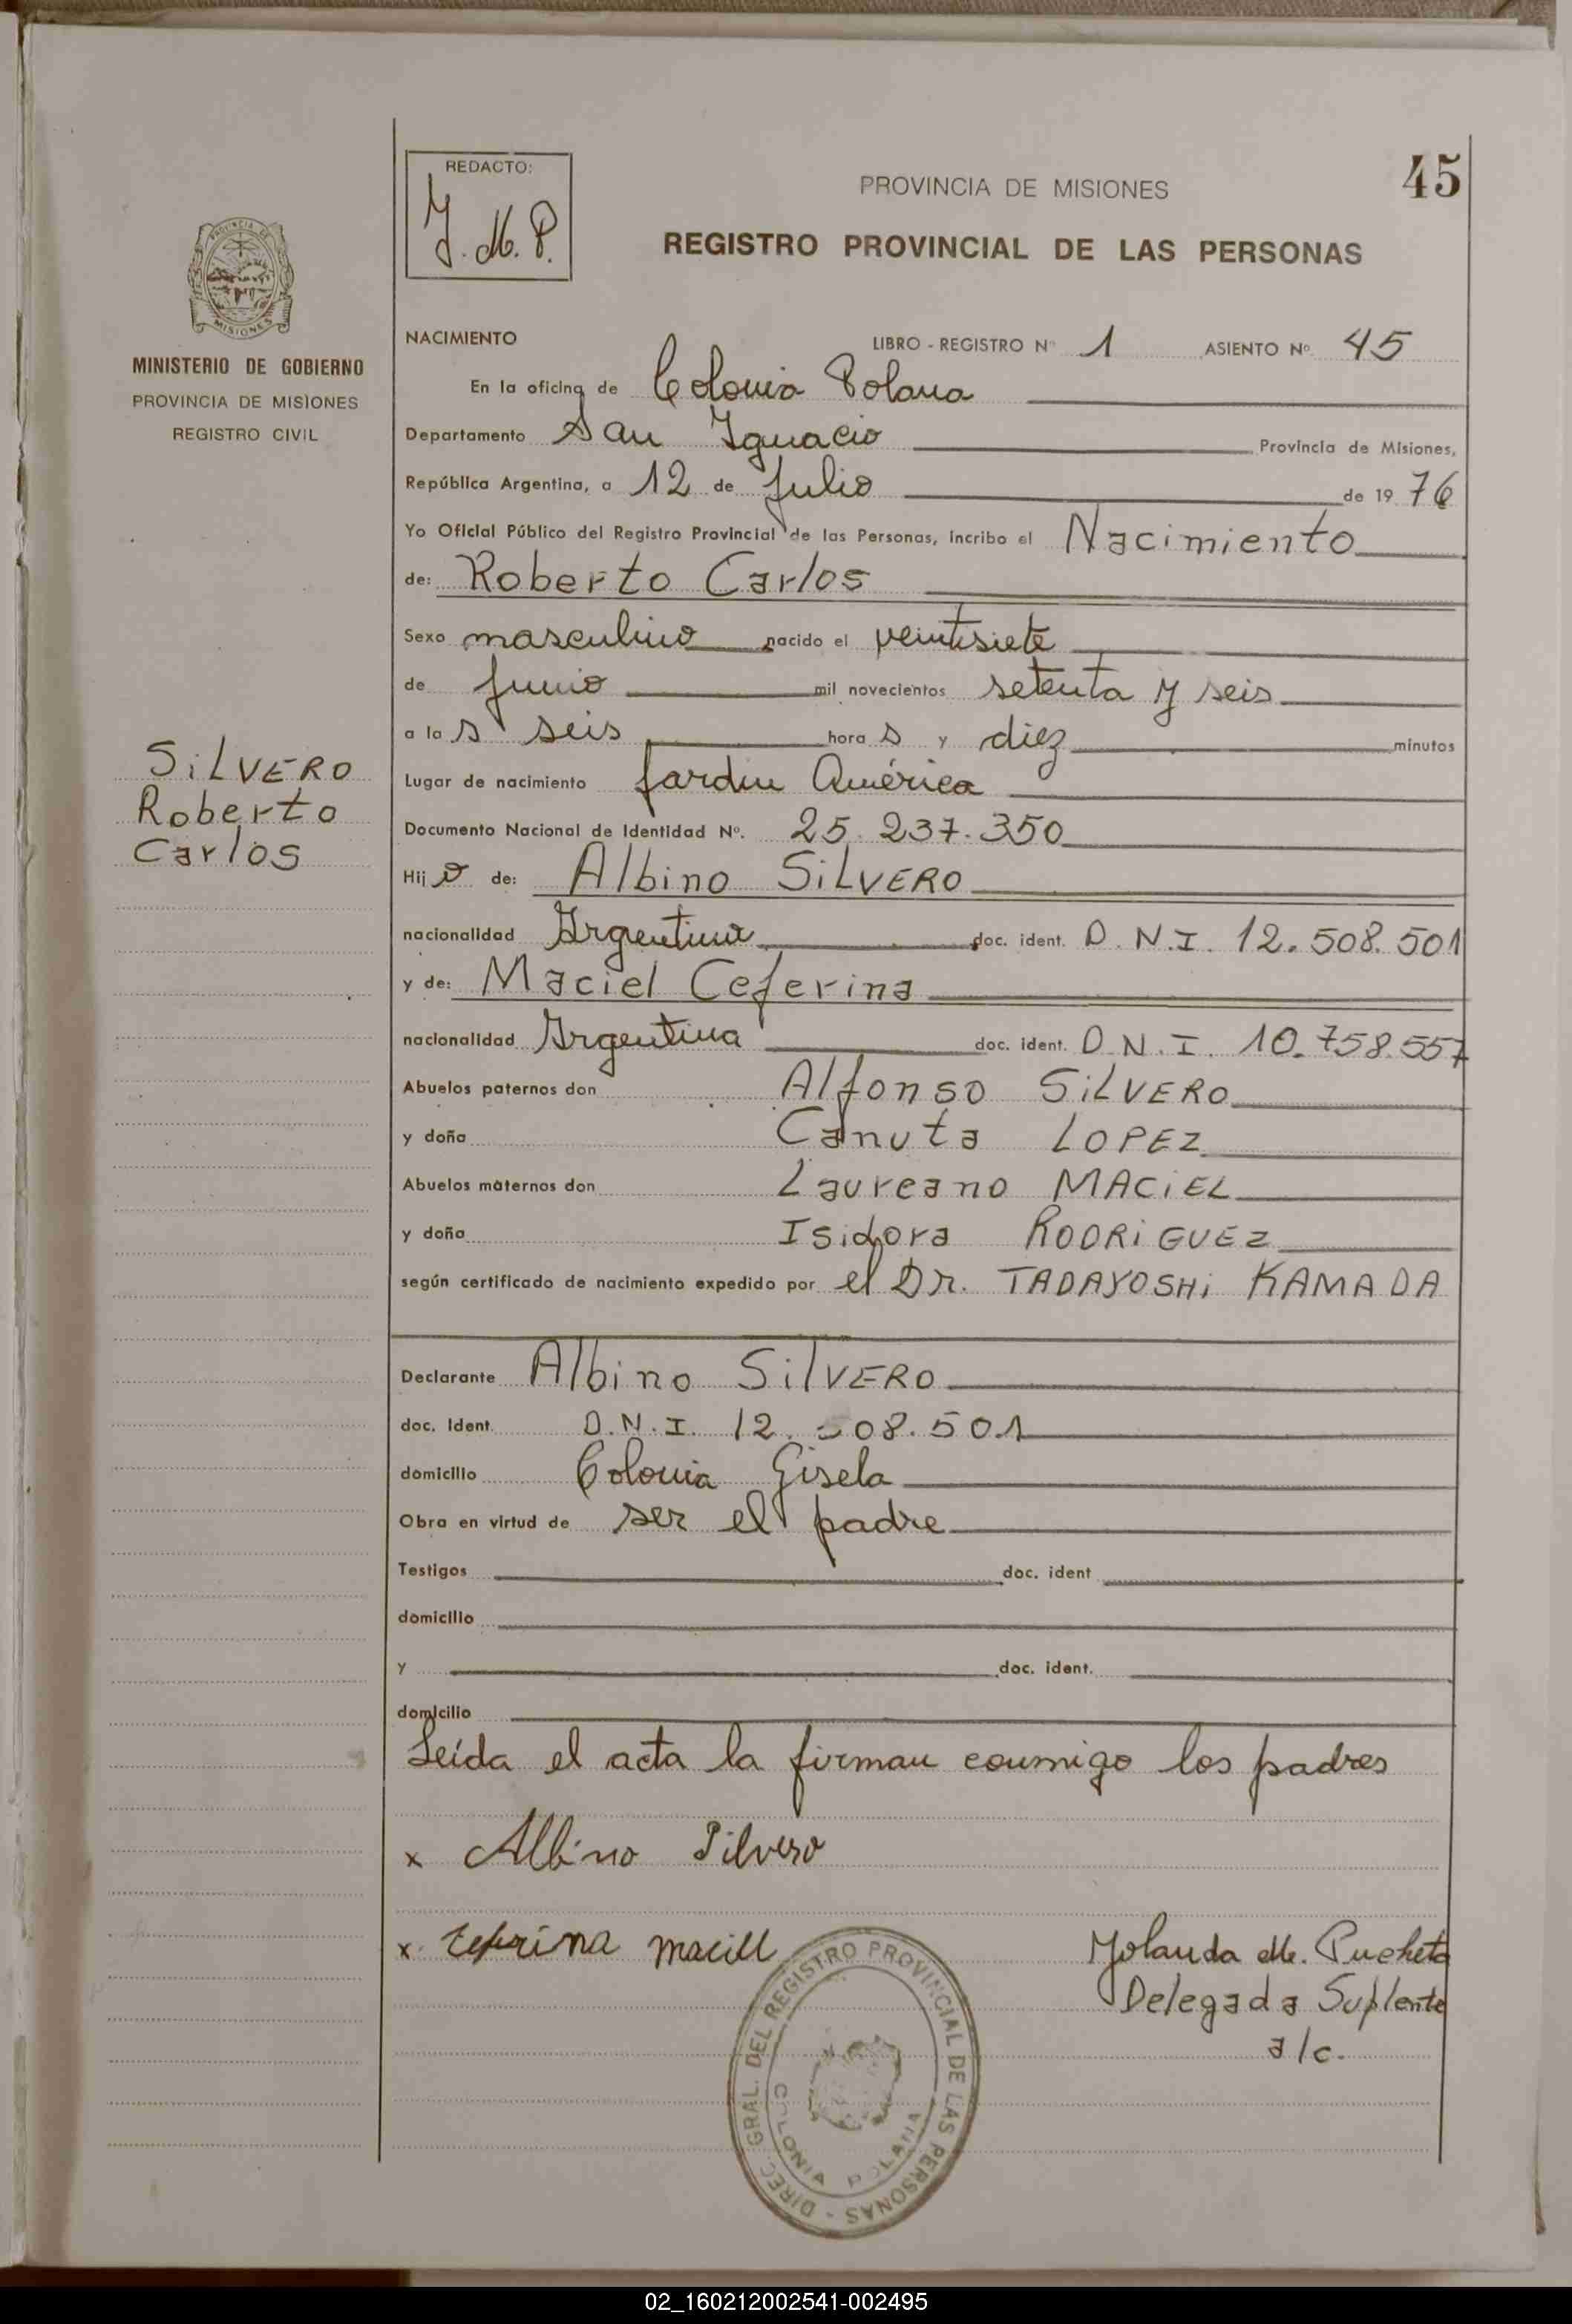 REDACTO:
J. M. P.
45
PROVINCIA DE MISIONES
REGISTRO PROVINCIAL DE LAS PERSONAS
PROVINCIA DE
MISIONES
MINISTERIO DE GOBIERNO
PROVINCIA DE MISIONES
REGISTRO CIVIL
NACIMIENTO LIBRO - REGISTRO Nº 1 ASIENTO Nº 45
En la oficina de Colonia Polana
Departamento San Ignacio Provincia de Misiones,
República Argentina, a 12 de Julio de 19 76
Yo Oficial Público del Registro Provincial de las Personas, incribo el Nacimiento
de: Roberto Carlos
Sexo masculino nacido el veintisiete
de Junio mil novecientos setenta y seis
a la s seis hora s y diez minutos
SiLVERO
Roberto
Carlos
Lugar de nacimiento Jardin América
Documento Nacional de Identidad Nº. 25.237.350
Hij o de: Albino SiLVERO
nacionalidad Argentina doc. ident. D.N.I. 12.508.501
y de: Maciel Ceferina
nacionalidad Argentina doc. ident. D.N.I. 10.758.557
Abuelos paternos don Alfonso SiLVERO
y doña Canuta LOPEZ
Abuelos maternos don Laureano MACiEL
y doña Isidora RODRiGUEZ
según certificado de nacimiento expedido por el Dr. TADAYOSHi KAMADA
Declarante Albino SilVERO
doc. Ident. D.N.I. 12.508.501
domicilio Colonia Gisela
Obra en virtud de ser el padre
Testigos doc. ident
domicilio
y doc. ident.
domicilio
Leída el acta la firman conmigo los padres
x Albino Silvero
x. Ceferina maciel
Yolanda M. Pucheta
Delegada Suplente
a/c.
DIREC. GRAL. DEL REGISTRO PROVINCIAL DE LAS PERSONAS -
COLONIA POLANA
02_160212002541-002495